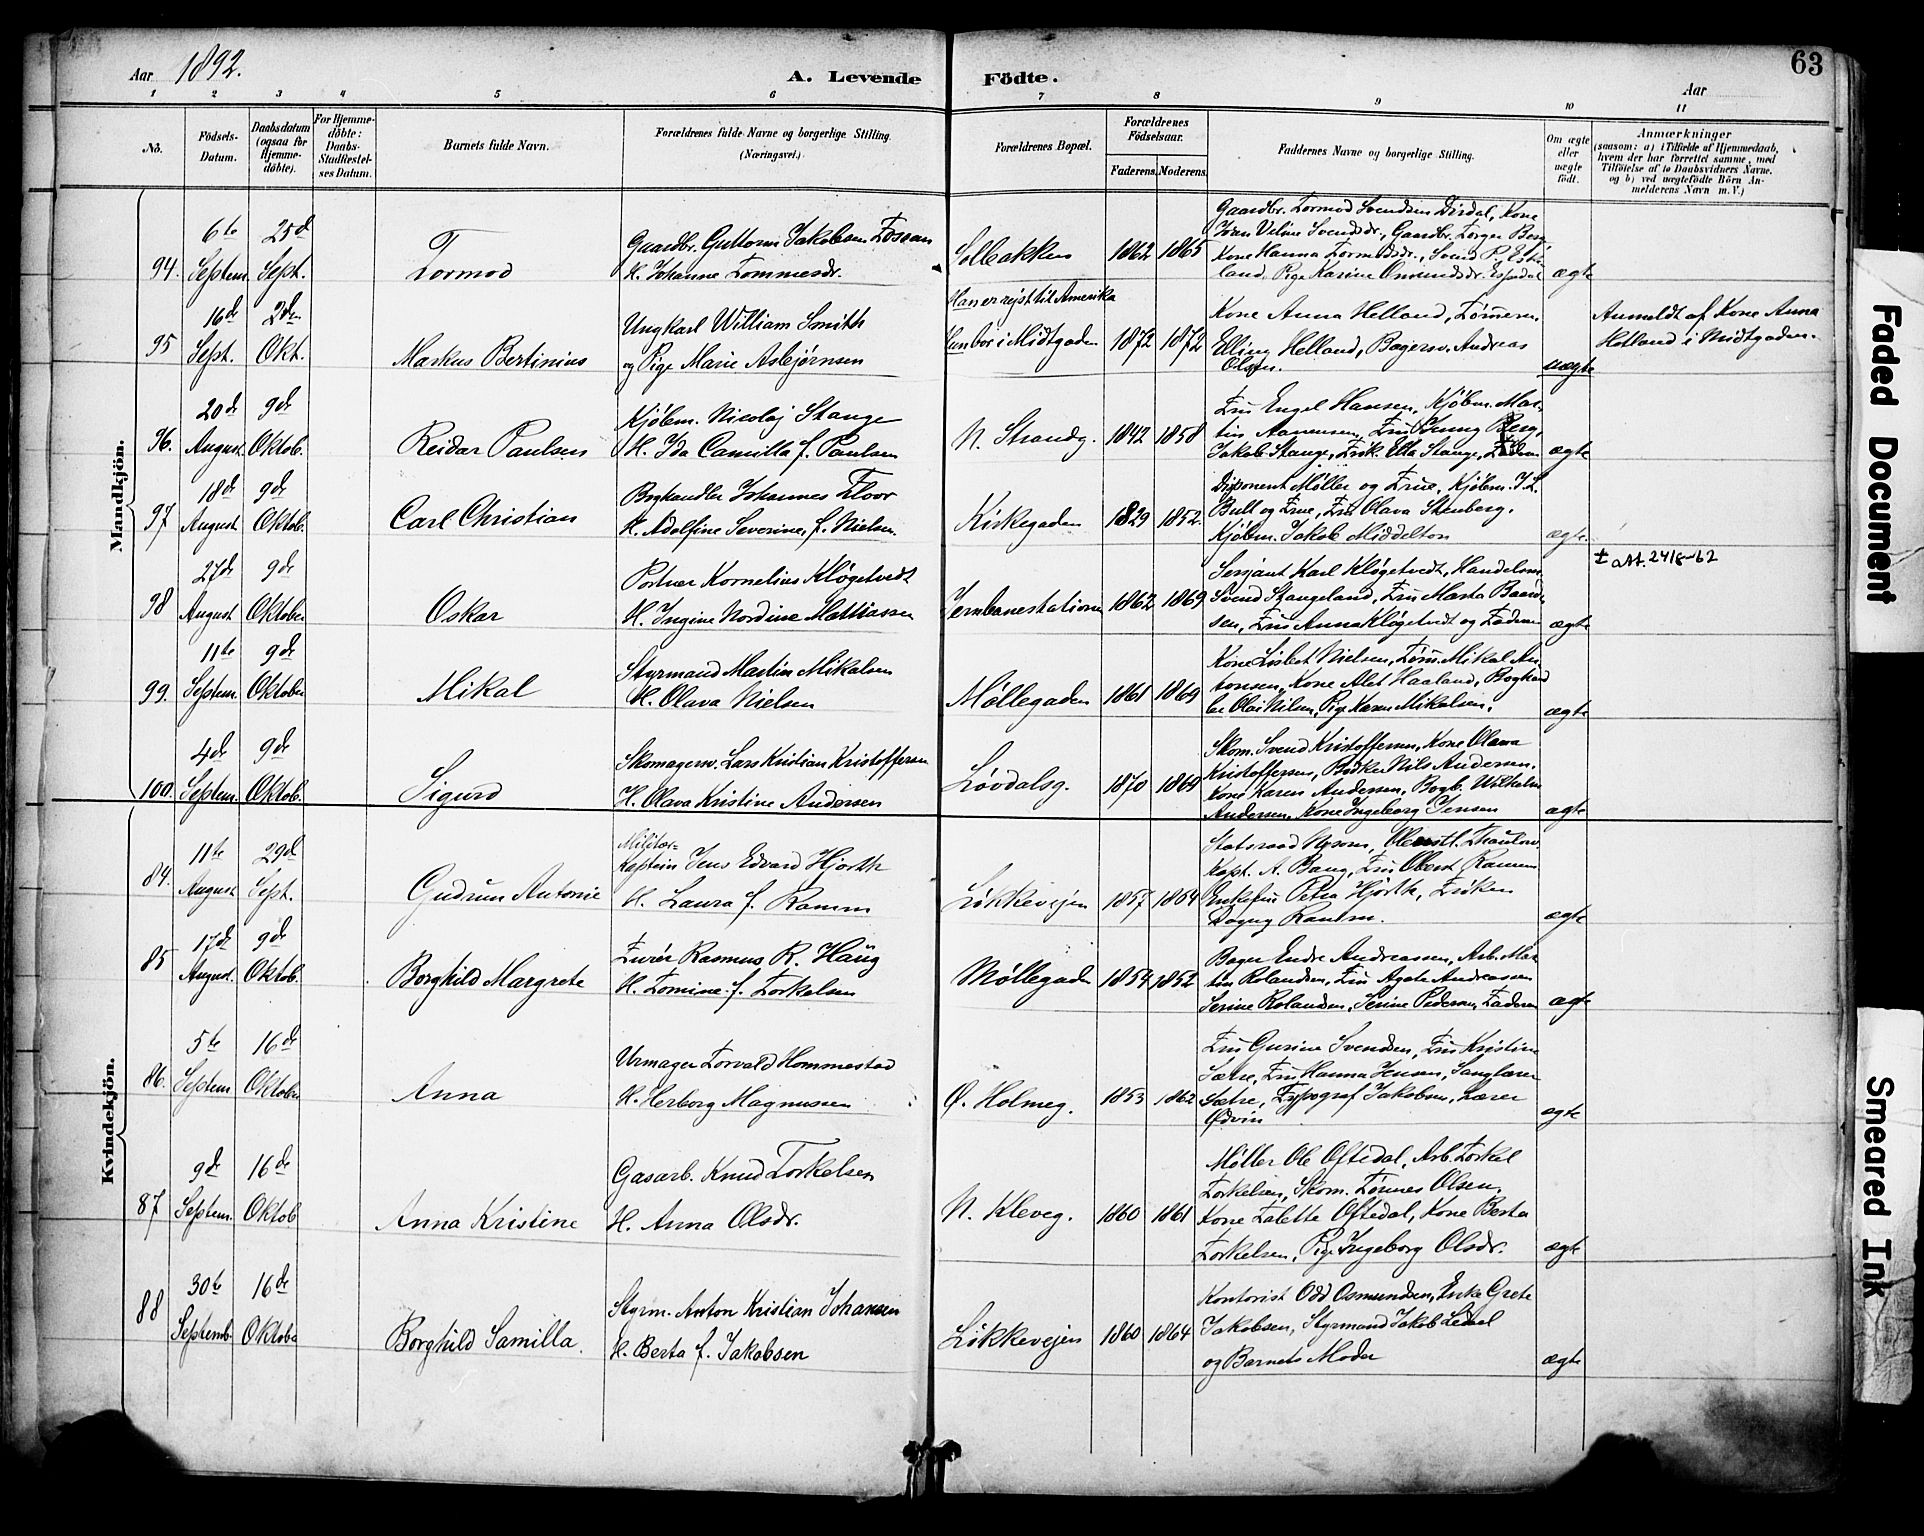 63
Aar 1892. A. Levende Födte. Aar
1 2 3 4 5 6 7 8 9 10 11
No.
Födsels-
Datum.
Daabsdatum
(ogsaa for
Hjemme-
döbte).
For Hjemme-
döbte:
Daabs-
Stadfæstel-
ses Datum.
Barnets fulde Navn.
Forældrenes fulde Navne og borgerlige Stilling.
(Næringsvei.)
Forældrenes Bopæl.
Forældrenes
Födselsaar.
Faderens. Moderens.
Faddernes Navne og borgerlige Stilling.
Om ægte
eller
uægte
födt.
Anmærkninger
(saasom: a) i Tilfælde af Hjemmedaab,
hvem der har forrettet samme, med
Tilföielse af to Daabsvidners Navne.
og b) ved uægtefödte Börn An-
melderens Navn m. V.)
Mandkjön.
94. 6te Septem. 25d Sept.
Tormod
Gaardbr. Guttorm Jakobsen Fossan
H. Johanne Tommesdr.
Solbakken 1862 1865
Gaardbr. Tormod Svendsen Dirdal, Kone
Jøren Veline Svendsdr., Gaardbr. Torger Berg,
Kone Hanna Tormodsdr., Svend P. Est-
land, Pige Karine Onundsdr. Espedal
ægte
95 16d Sept. 2den Okt.
Markus Bertinius
Ungkarl William Smith
og Pige Marie Asbjørnsen
Han er rejst til Amerika
Hun bor i Midtgaden 1872 1872
Kone Anna Helland, Tømrerm.
Elling Helland, Bagersv. Andreas
Olsen.
uægte
Anmeldt af Kone Anna
Helland i Midtgaden.
96. 20d August 9de Oktob.
Reidar Paulsen
Kjøbm. Nicolaj Stange
H. Ida Camilla f. Paulsen
N. Strandg. 1842 1858
Fru Engel Hansen, Kjøbm. Mar-
tin Aanensen, Fru Jenny Berg,
Jakob Stange, Frøk. Etta Stange, Faderen
ægte
97 18de August 9de Oktob.
Carl Christian
Boghandler Johannes Floor
H. Adolfine Severine, f. Nielsen.
Kirkegaden 1829 1852.
Disponent Møller og Frue, Kjøbm. J. L.
Bull og Frue, Fru Olava Stenberg,
Kjøbm. Jakob Middelton
ægte.
98 27de August 9de Oktober
Oskar
Portner Kornelius Kløgetvedt
H. Ingine Nordine Mattiassen
Jernbanestationen 1862 1869
Sersjant Karl Kløgetvedt, Handelsm.
Svend Stangeland, Fru Marta Baard-
sen, Fru Anna Kløgetvedt og Faderen
ægte
± att. 24/8-62
99. 11te Septem. 9de Oktober
Mikal
Styrmand Martin Mikalsen
H. Olava Nielsen
Møllegaden 1861 1869
Kone Lisbet Nielsen, Tøm. Mikal An-
tonsen, Kone Alet Haaland, Boghand
ler Olai Nilsen, Pige Karen Mikalsen.
ægte
100. 4de Septem. 9de Oktob.
Sigurd
Skomagersv. Lars Kristian Kristoffersen
H. Olava Kristine Andersen
Løvdalsg. 1870 1869
Skom. Svend Kristoffersen, Kone Olava
Kristoffersen, Bødker Nils Andersen,
Kone Karen Andersen, Bogb. Wilhelm
Andersen, Kone Ingeborg Jensen
ægte
Kvindekjön.
84. 11te August 29d Sept.
Gudrun Antonie
Militær-
Kaptein Jens Edvard Hjorth
H. Laura f. Ramm
Løkkevejen 1857 1864
Statsraad Nysom, Oberstl. Thaulow
Kapt. A. Bang, Fru Oberst Ramm
Enkefru Petra Hjorth, Frøken
Dagny Ramm.
ægte
85 17de August. 9de Oktob.
Borghild Margrete
Furér Rasmus R. Haug
H. Tomine f. Torkelsen
Møllegaden 1854 1852
Bager Endre Andreassen, Arb. Mar
tin Rolandsen, Fru Agate Andreassen
Serine Rolandsen, Serine Pedersen, Faderen
ægte
86. 5te Septem 16de Oktober
Anna
Urmager Torvald Hommestad
H. Herborg Magnussen
Ø. Holmeg. 1853 1862
Fru Gurine Svendsen, Fru Kristine
Sætre, Fru Hanna Jensen, Sanglærer
Sætre, Typograf Jakobsen, Lærer
Ødvin
ægte
87 9de Septem. 16de Oktob
Anna Kristine
Gasarb. Knud Torkelsen
H. Anna Olsdr.
N. Kleveg. 1860 1861
Møller Ole Oftedal, Arb. Torkel
Torkelsen, Skom. Tønnes Olsen,
Kone Talette Oftedal, Kone Berta
Torkelsen, Pige Ingeborg Olsdr.
ægte
88 30te Septemb. 16de Oktober
Borghild Samilla.
Styrm. Anton Kristian Johansen
H. Berta f. Jakobsen
Løkkevejen 1860 1864
Kontorist Odd Osmundsen, Enke Grete
Jakobsen, Styrmand Jakob Ledaal
og Barnets Moder
ægte
Faded Document
Smeared Ink